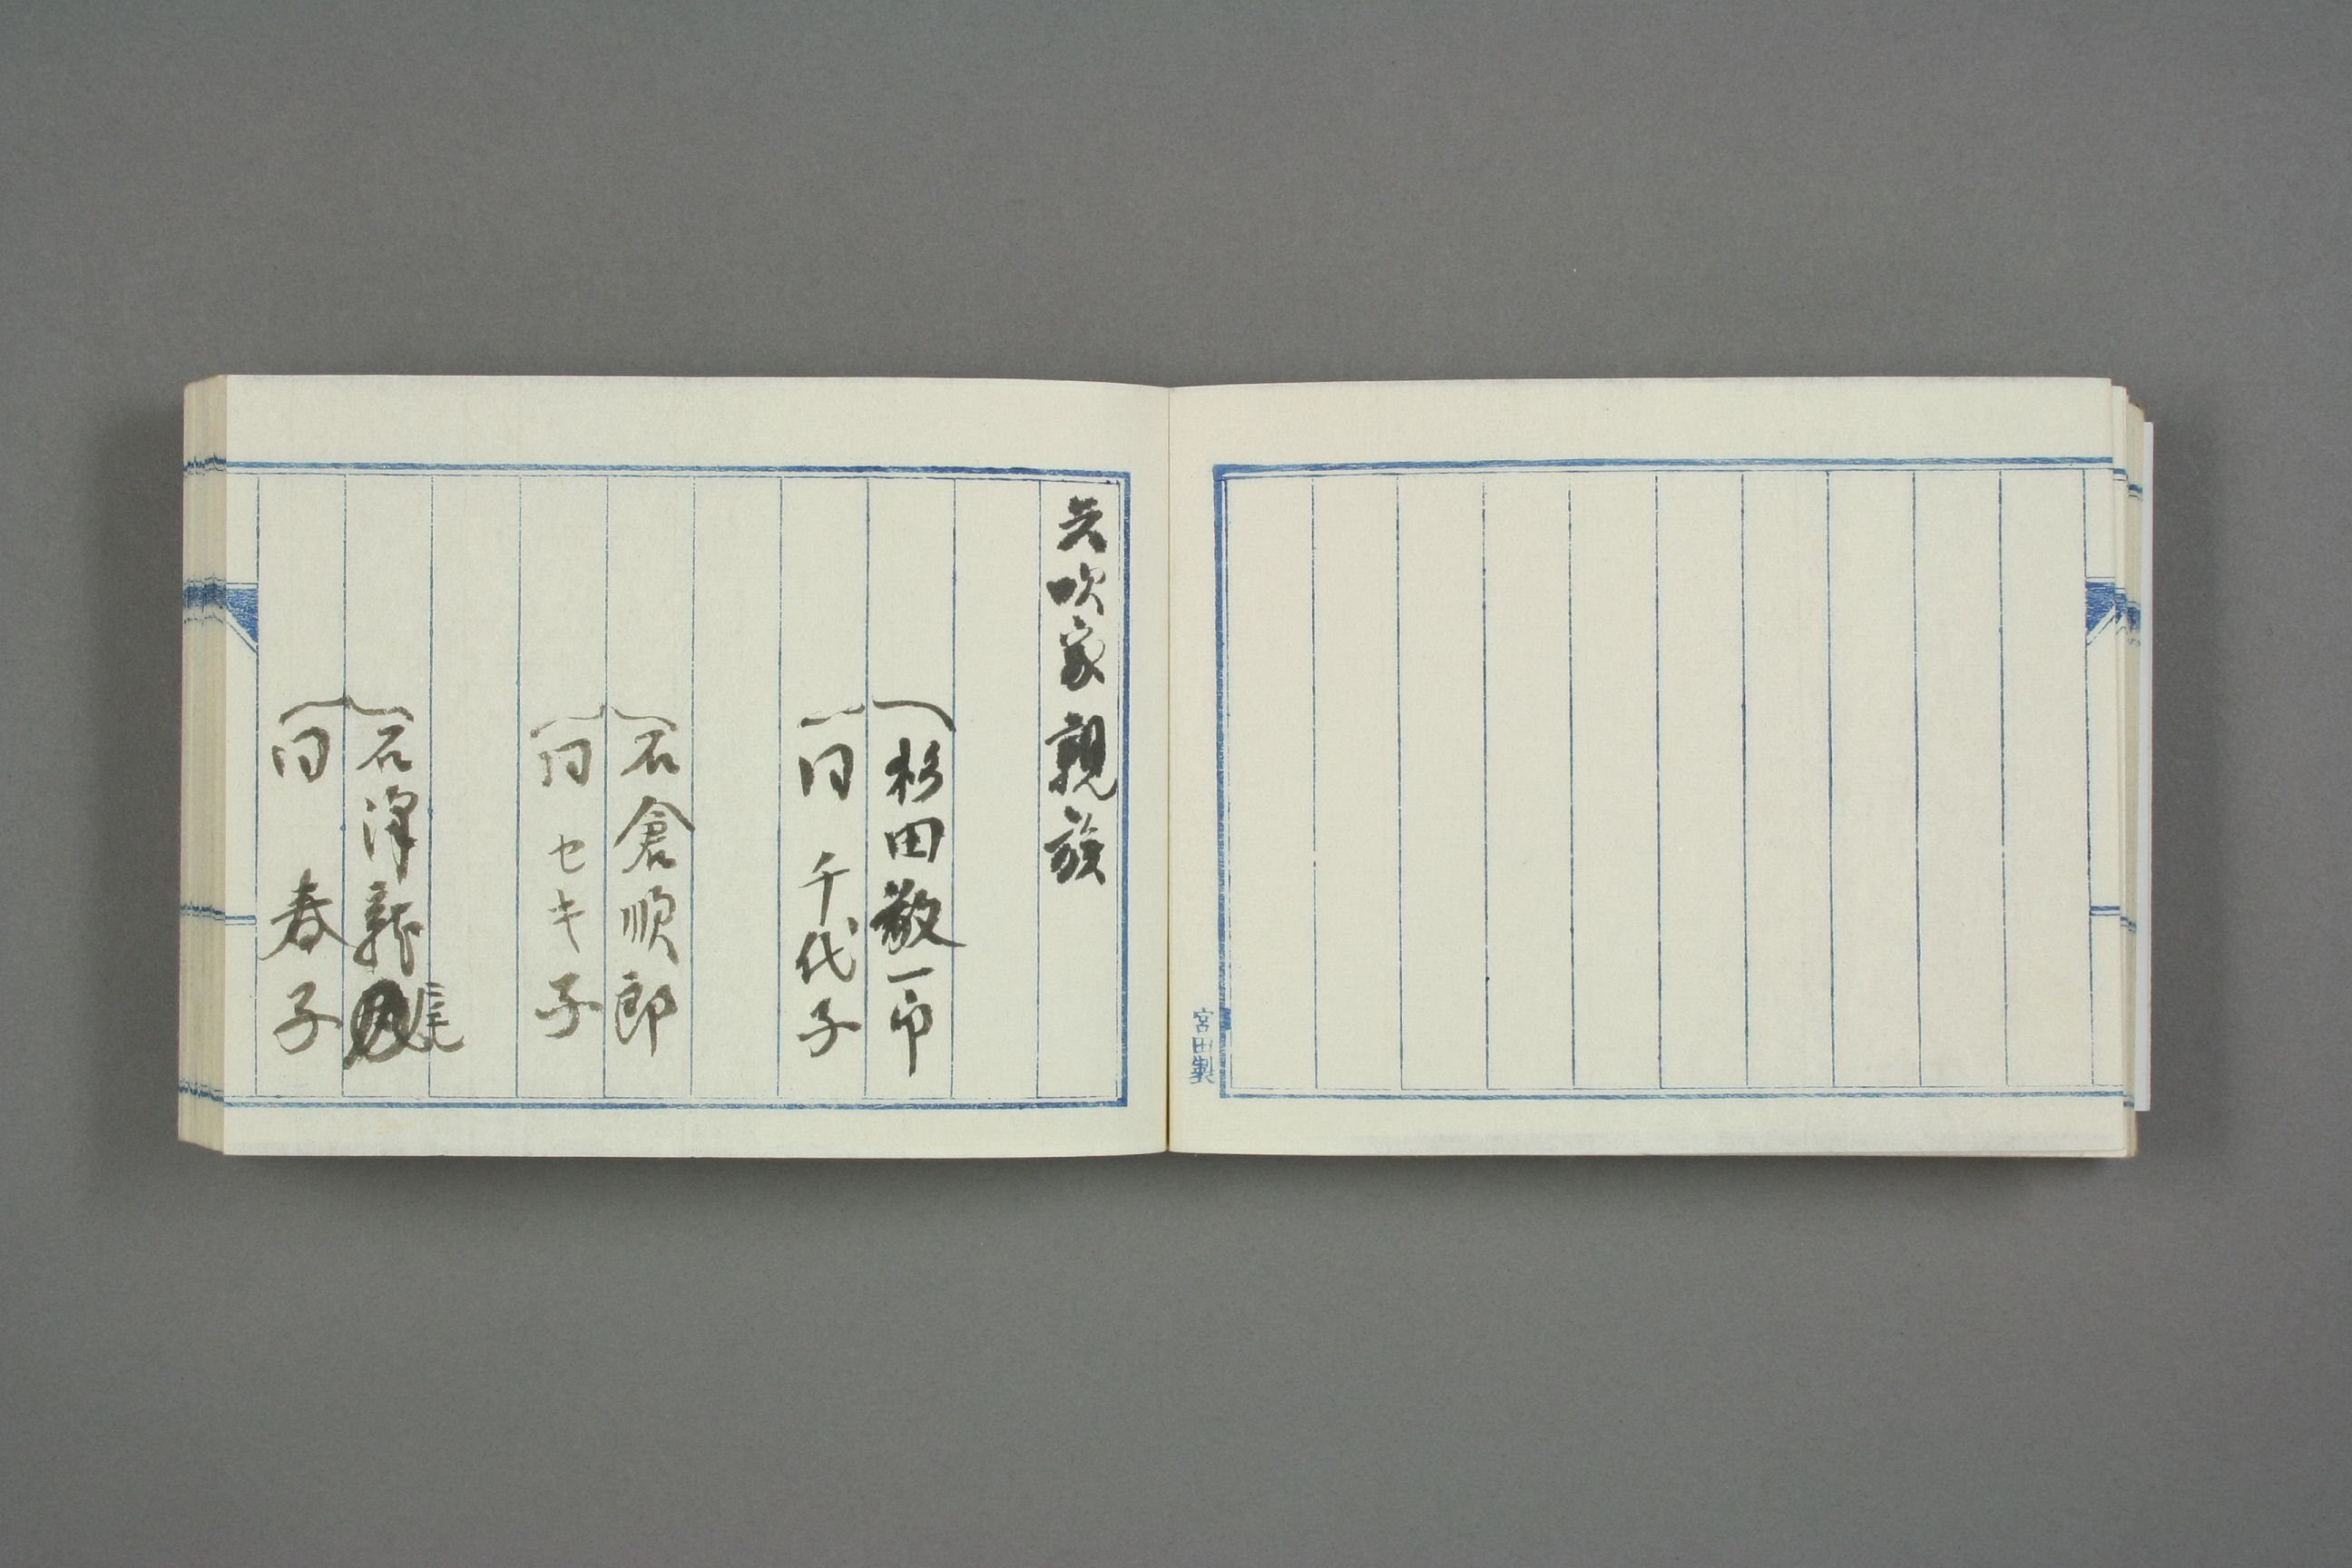 宮田製
矢吹家親族
杉田敬一郎
同 千代子
石倉順郎
同 セキ子
石澤龍
同 春子